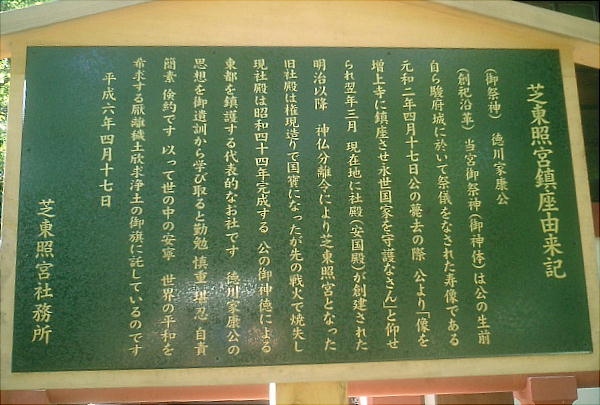 芝東照宮鎮座由来記
(御祭神) 徳川家康公
(創祀沿革) 当宮御祭神(御神体)は公の生前
自ら駿府城に於いて祭儀をなされた寿像である
元和二年四月十七日公の薨去の際 公より「像を
増上寺に鎮座させ永世国家を守護なさん」と仰せ
られ翌年三月 現在地に社殿(安国殿)が創建された
明治以降 神仏分離令により芝東照宮となった
旧社殿は権現造りで国宝になったが先の戦火で焼失し
現社殿は昭和四十四年完成する 公の御神徳による
東都を鎮護する代表的なお社です 徳川家康公の
思想を御遺訓から学び取ると勤勉 慎重 堪忍 自責
簡素 倹約です 以って世の中の安寧 世界の平和を
希求する厭離穢土欣求浄土の御旗に託しているのです
平成六年四月十七日
芝東照宮社務所